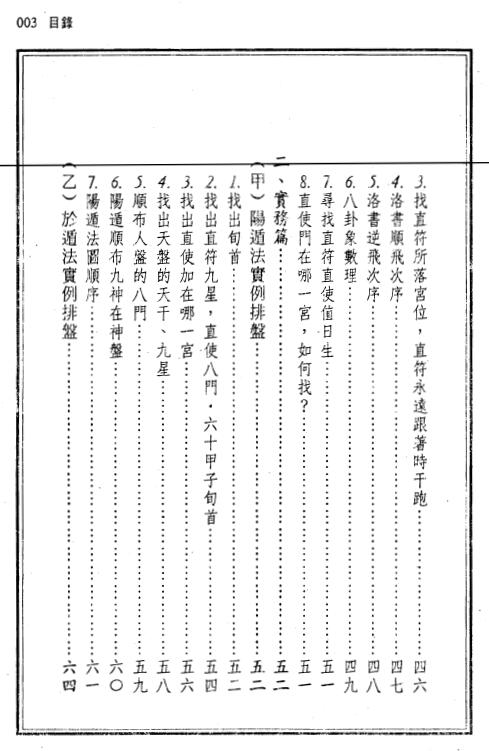 003 目錄
3.找直符所落宮位，直符永遠跟著時干跑……四六
4.洛書順飛次序……四七
5.洛書逆飛次序……四八
6.八卦象數理……四九
7.尋找直符直使值日生……五一
8.直使門在哪一宮，如何找？……五一
二、實務篇……五二
(甲)陽遁法實例排盤……五二
1.找出旬首……五二
2.找出直符九星，直使八門，六十甲子旬首……五四
3.找出直使加在哪一宮……五六
4.找出天盤的天干、九星……五八
5.順布人盤的八門……五九
6.陽遁順布九神在神盤……六〇
7.陽遁法圖順序……六一
(乙)於遁法實例排盤……六四